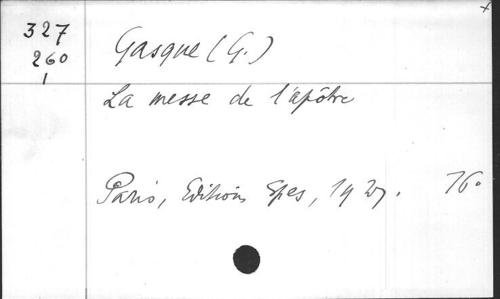 327
260
1
Gasque (G.)
La messe de l'apôtre
Paris, Editions Spes, 1927. 16°
x